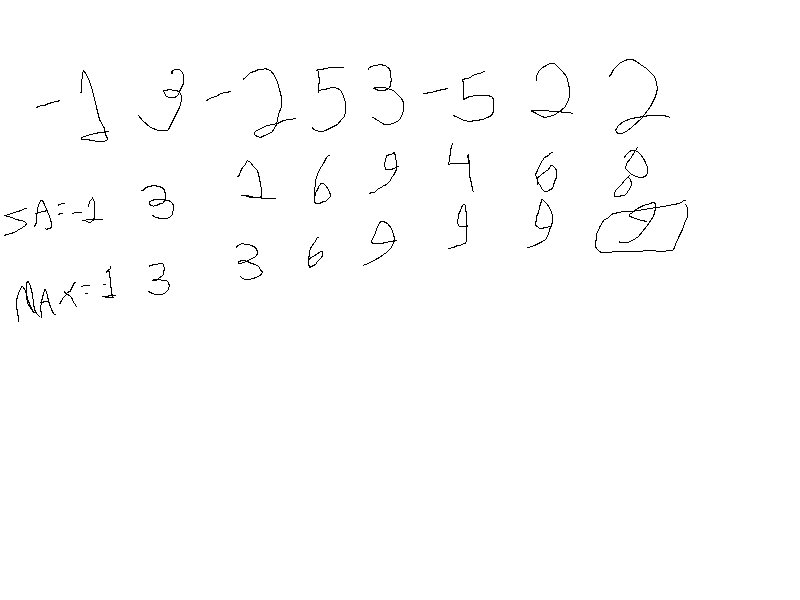 -1 3 -2 5 3 -5 2 2
SA=-1 3 1 6 9 4 6 8
MAX=-1 3 3 6 9 9 9 9